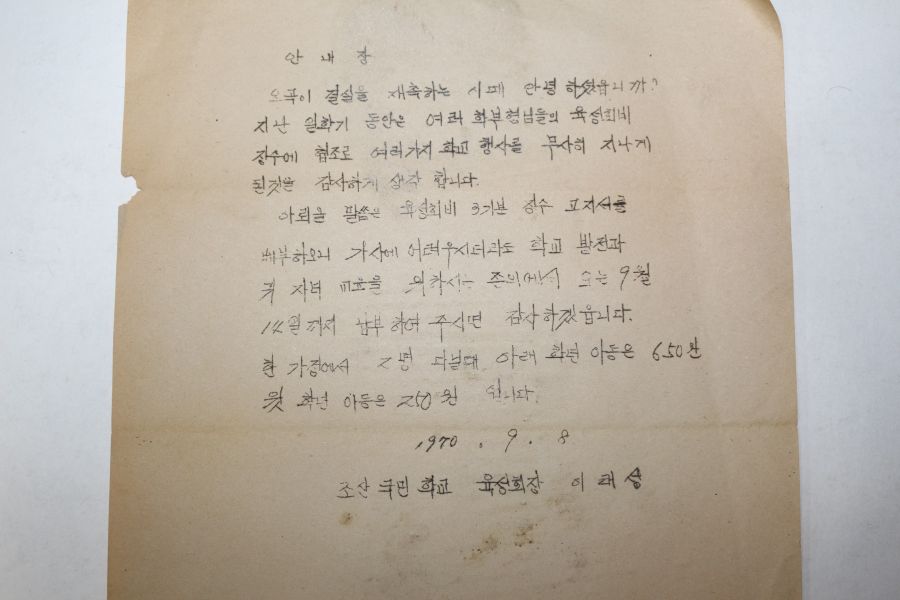 안 내 장
오곡이 결실을 재촉하는 시제 안녕 하셨읍니까?
지난 일학기 동안은 여러 학부형님들의 육성회비
징수에 협조로 여러가지 학교 행사를 무사히 지나게
된것을 감사하게 생각 합니다.
아뢰올 말씀은 육성회비 3기분 징수 고지서를
배부하오니 가사에 어려우시더라도 학교 발전과
귀 자녀 교육을 위하시는 오는 9월
12일 까지 납부하여 주시면 감사 하겠읍니다.
한 가정에서 2명 다닐때 아래 학년 아동은 650원
윗 학년 아동은 250원 입니다.
1970. 9. 8
조산 국민 학교 육성회장 이 태 성